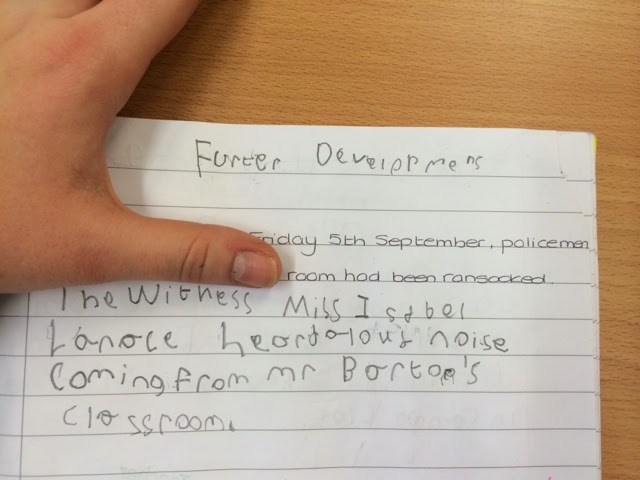 Furter Developmens
Friday 5th September, policemen
room had been ransacked.
The Witness Miss Isabel
heard a lous noise
Coming from mr Barton's
Classroom.